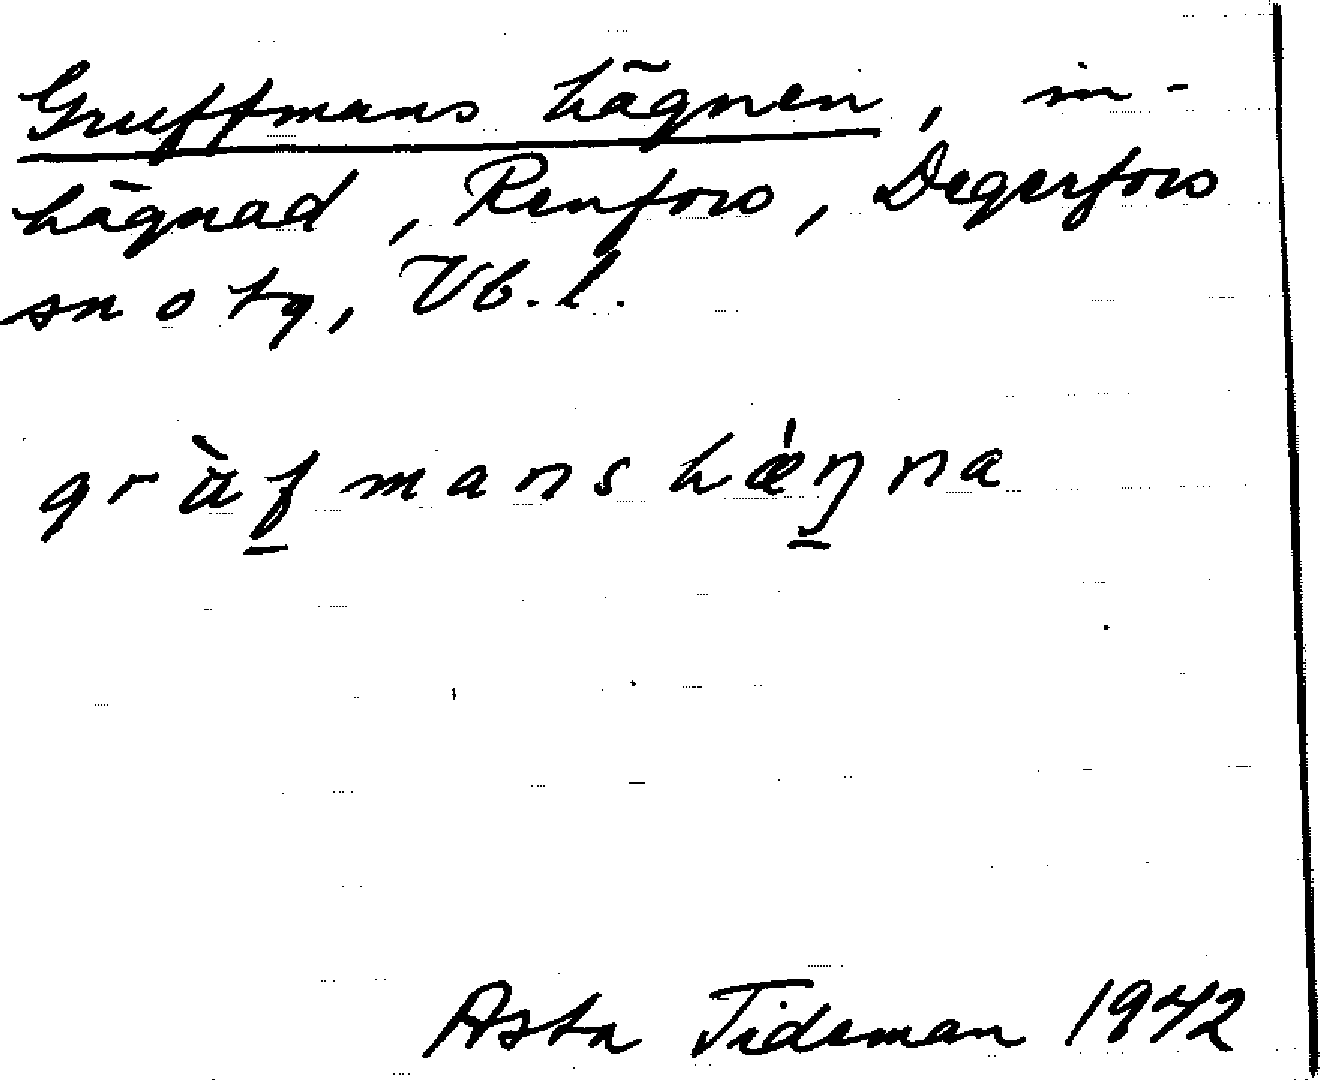 Gruffmans hägnen, in-
hägnad, Renfors, Degerfors
sn o tg, Vb. l.
gràf̲manshǽŋ̲na
Asta Tideman 1942